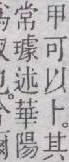 甲可以上其
常璩述華陽